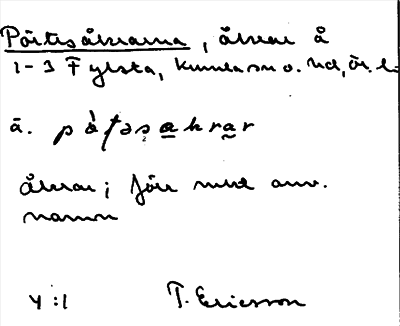 Påtesåkrarna, åkrar å
1-3 Fylsta, Kumla sn o. hd, Ör. l.
ā. på̀tǝsakrar
åkrar; förr mera anv.
namn
4:1 T. Ericsson